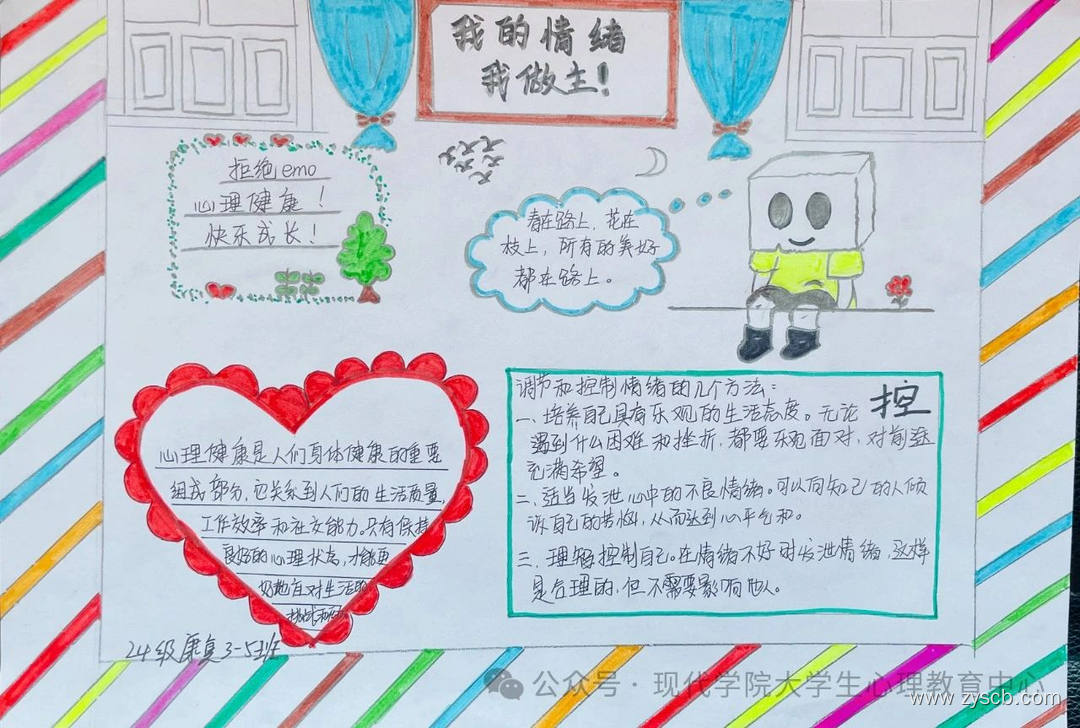 我的情绪
我做主!
拒绝emo
心理健康!
快乐成长!
春在路上,花在
枝上,所有的美好
都在路上。
心理健康是人们身体健康的重要
组成部分,它关系到人们的生活质量,
工作效率和社交能力。只有保持
良好的心理状态,才能更
好地应对生活的
挑战和
调节和控制情绪的几个方法:
控
一、培养自己具有乐观的生活态度。无论
遇到什么困难和挫折,都要乐观面对,对前途
充满希望。
二、适当发泄心中的不良情绪。可以向知己的人倾
诉自己的苦恼,从而达到心平气和。
三、理智控制自己。在情绪不好时发泄情绪,这样
是合理的,但不需要影响他人。
24级康复3-5班
公众号·现代学院大学生心理教育中心
www.zyscb.com